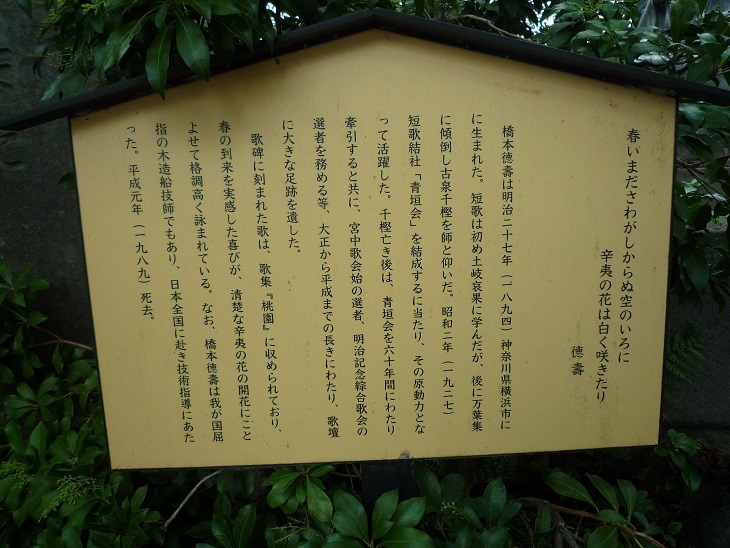 春いまださわがしからぬ空のいろに
辛夷の花は白く咲きたり
徳壽
橋本徳壽は明治二十七年（一八九四）神奈川県横浜市に
に生まれた。短歌は初め土岐哀果に学んだが、後に万葉集
に傾倒し古泉千樫を師と仰いだ。昭和二年（一九二七）
短歌結社「青垣会」を結成するに当たり、その原動力とな
って活躍した。千樫亡き後は、青垣会を六十年間にわたり
牽引すると共に、宮中歌会始の選者、明治記念綜合歌会の
選者を務める等、大正から平成までの長きにわたり、歌壇
に大きな足跡を遺した。
歌碑に刻まれた歌は、歌集『桃園』に収められており、
春の到来を実感した喜びが、清楚な辛夷の花の開花にこと
よせて格調高く詠まれている。なお、橋本徳壽は我が国屈
指の木造船技師でもあり、日本全国に赴き技術指導にあた
った。平成元年（一九八九）死去。